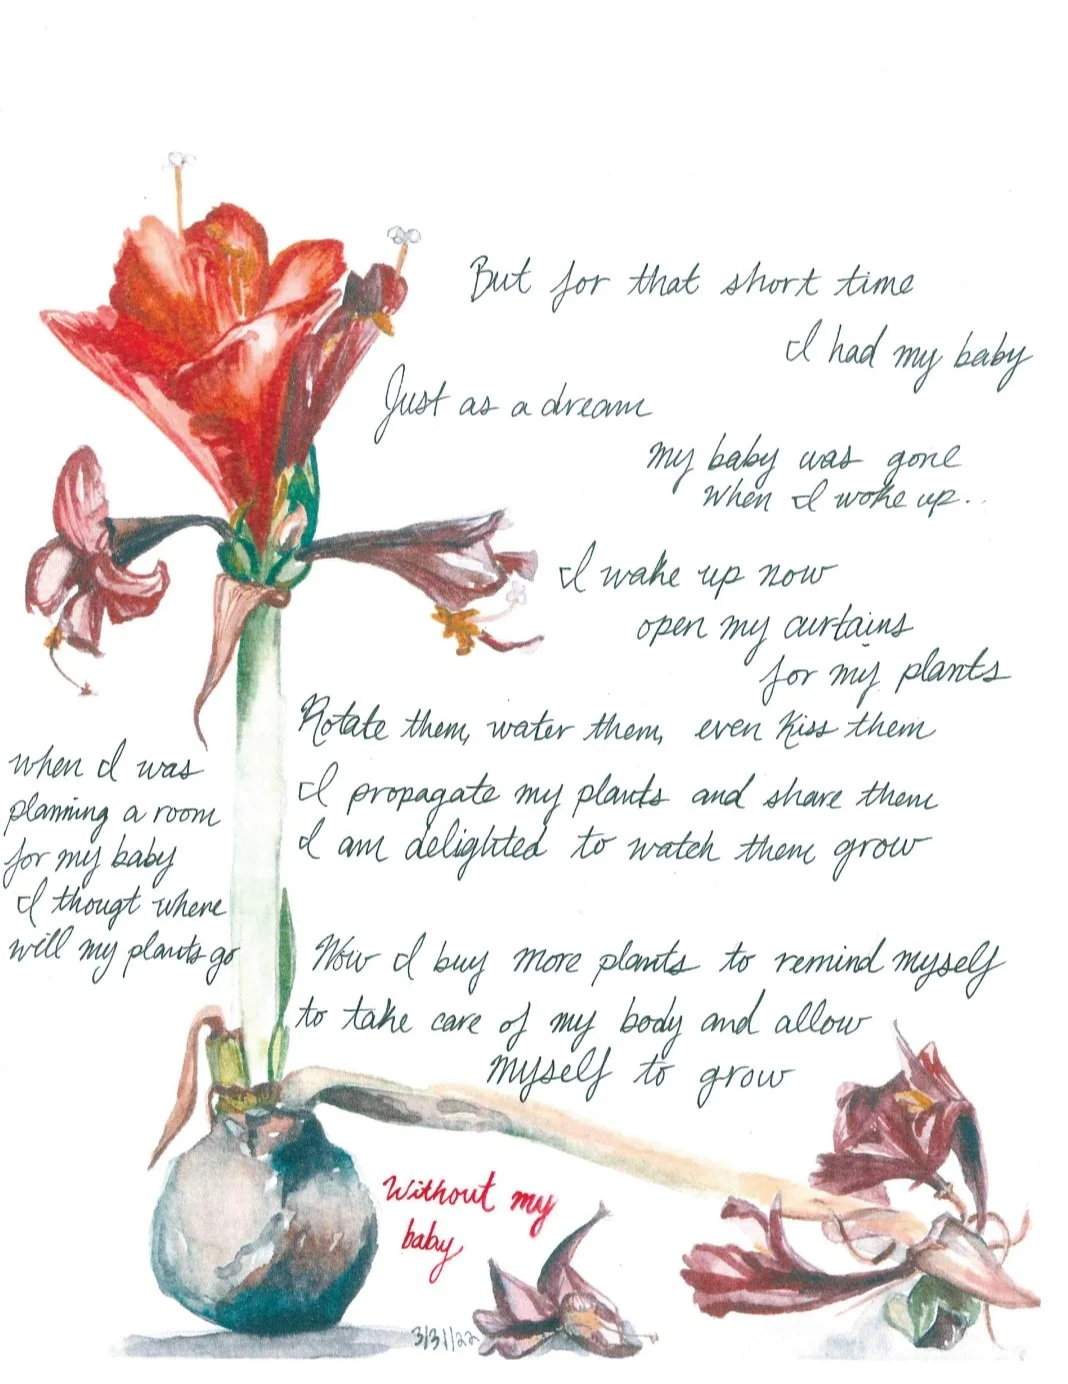 But for that short time
I had my baby
Just as a dream
my baby was gone
when I woke up..
I wake up now
open my curtains
for my plants
Rotate them, water them, even kiss them
I propagate my plants and share them
I am delighted to watch them grow
when I was
planning a room
for my baby
I thougt where
will my plants go
Now I buy more plants to remind myself
to take care of my body and allow
myself to grow
Without my
baby
3/31/22